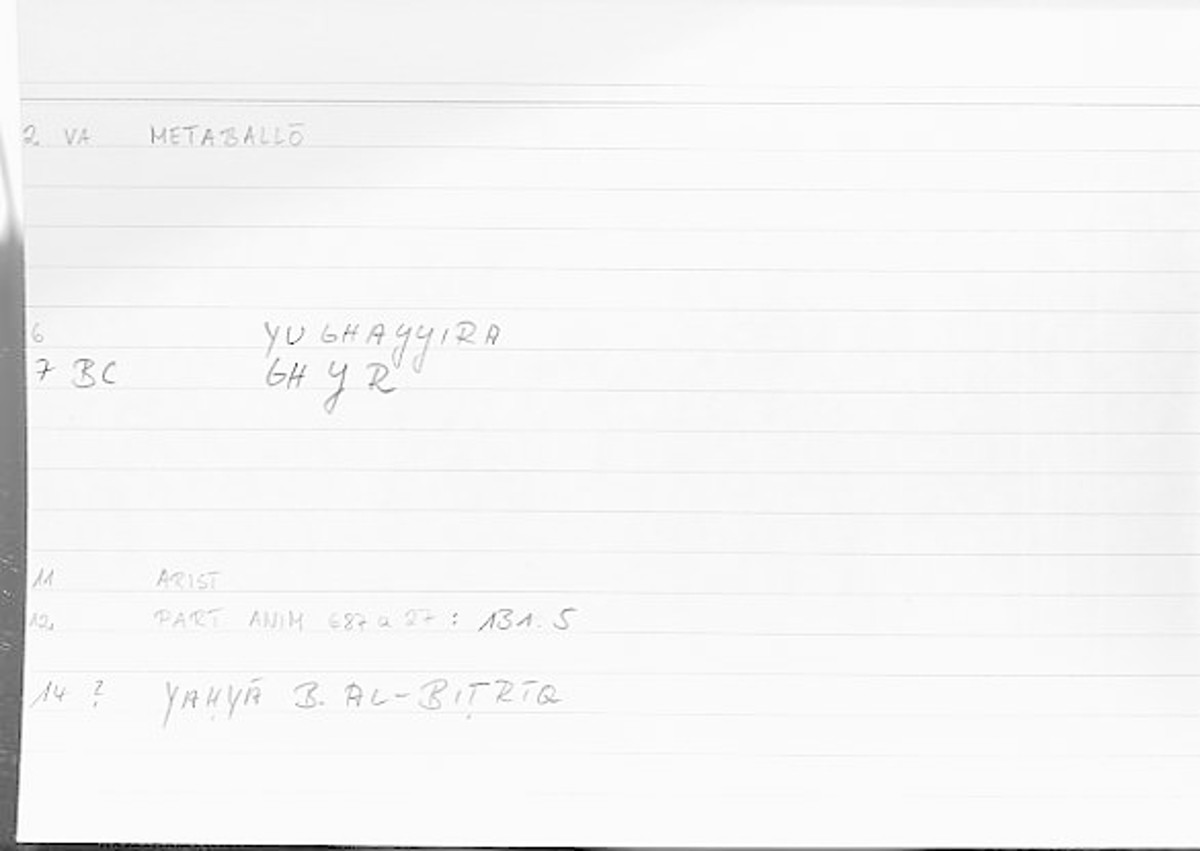 2 VA METABALLŌ
6 YUGHAYYIRA
7 BC GHYR
11 ARIST
12 PART. ANIM 687 a 27 : 131.5
14 ? YAḤYĀ B. AL-BIṬRĪQ